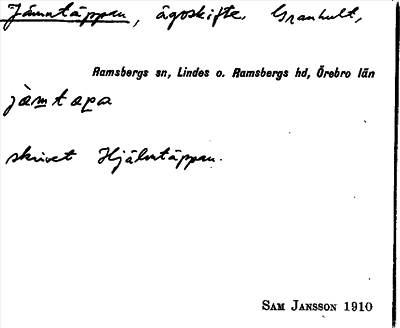 Jämntäppan, ägoskifte, Granhult,
Ramsbergs sn, Lindes o. Ramsbergs hd, Örebro län
jämtapa
skrivet Hjälmtäppan.
SAM JANSSON 1910